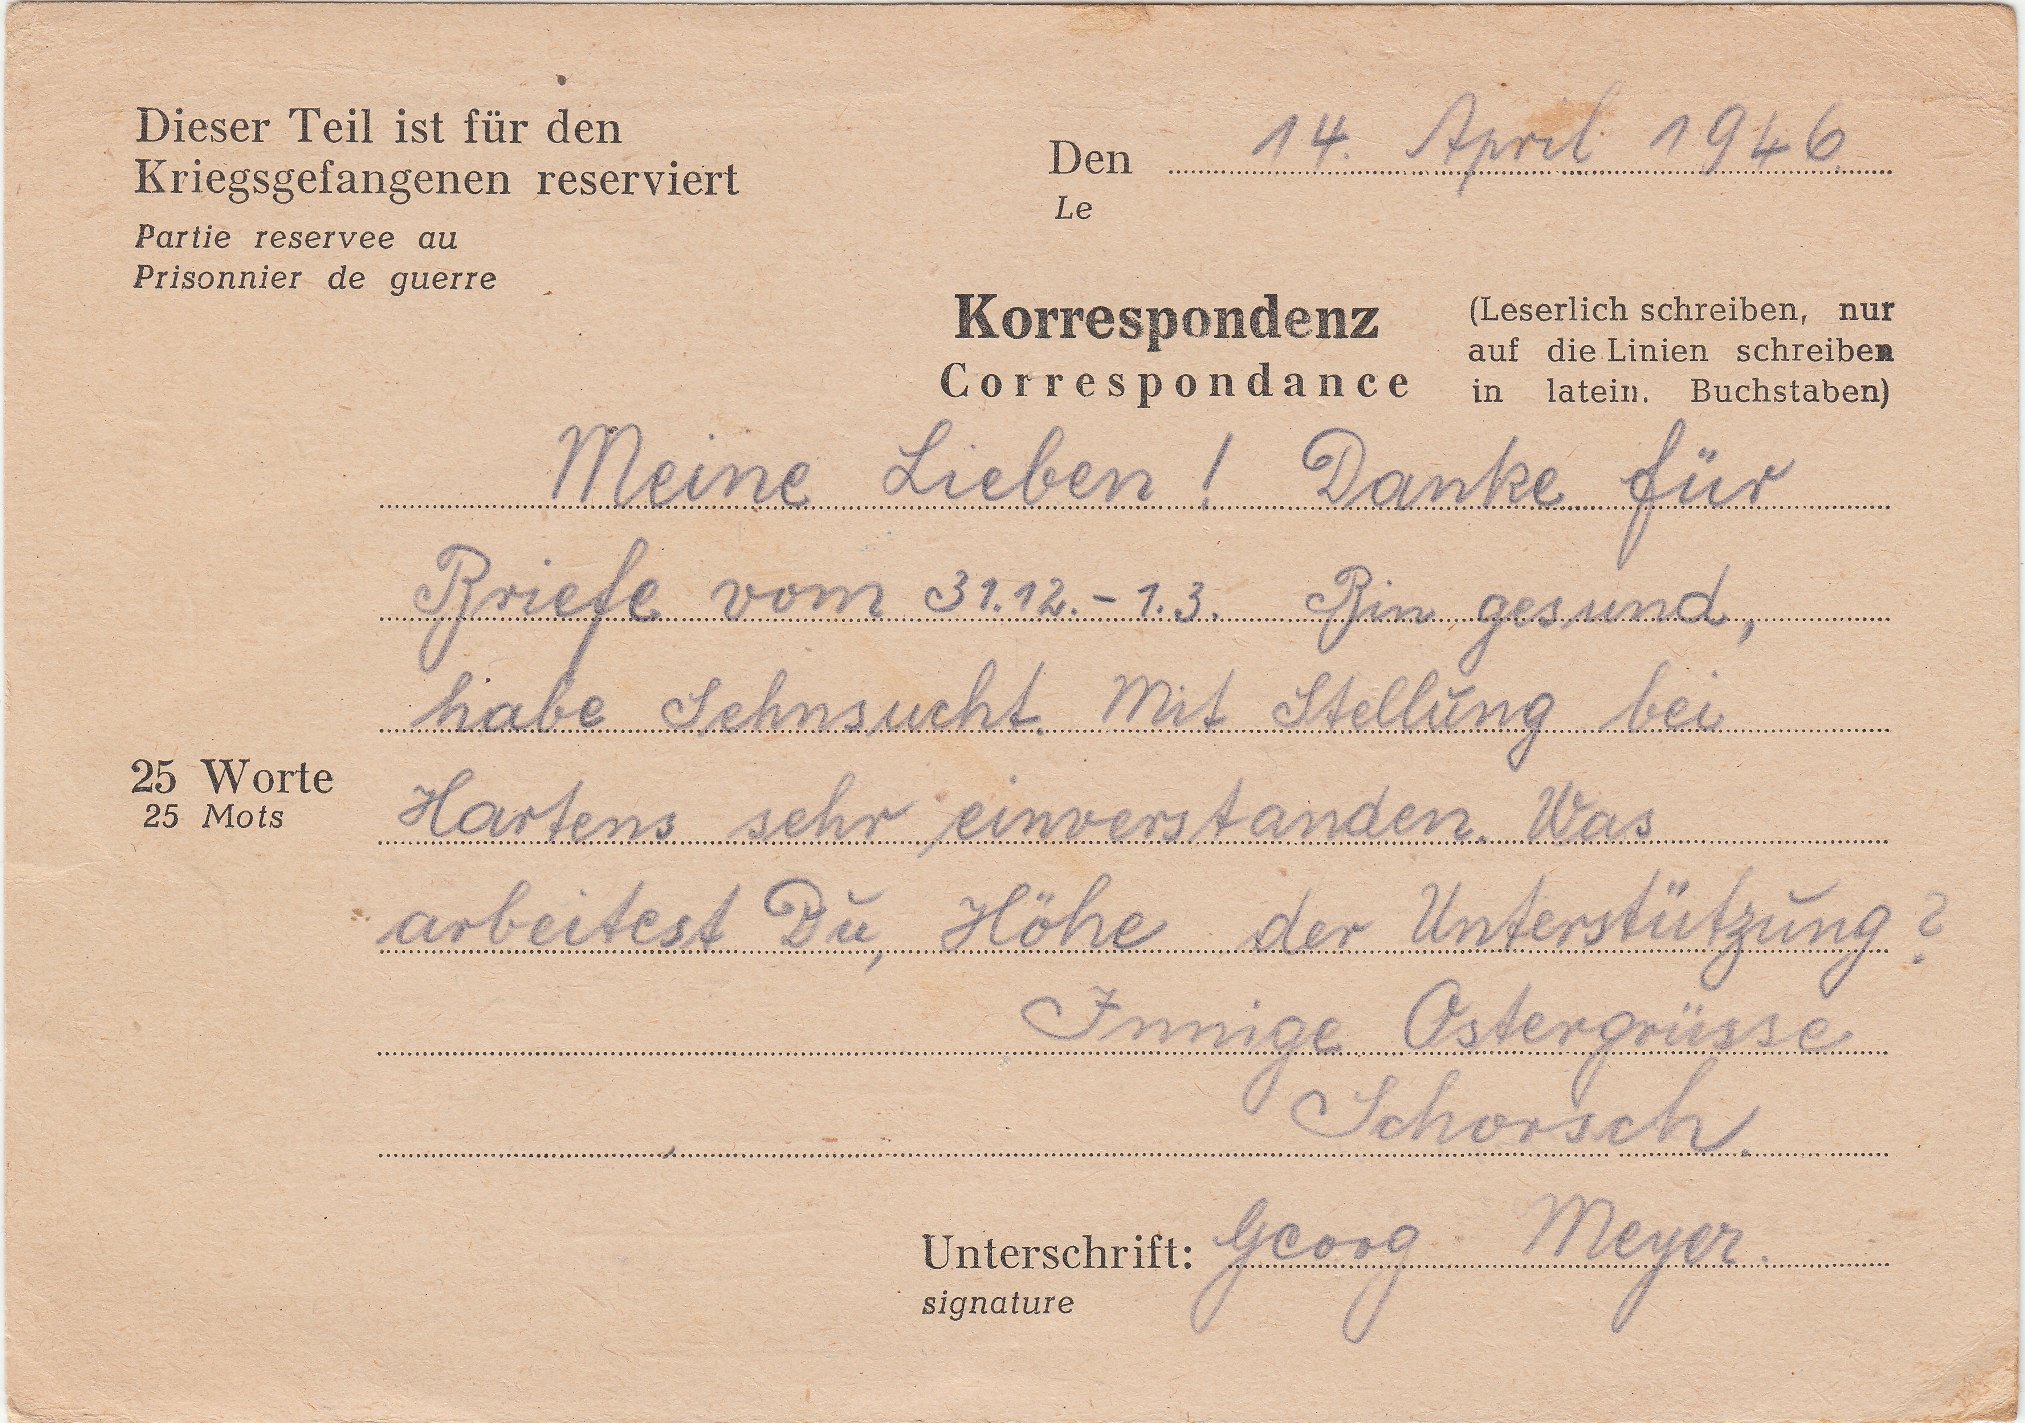 Dieser Teil ist für den
Kriegsgefangenen reserviert
Partie reservee au
Prisonnier de guerre
Den 14. April 1946.
Le
Korrespondenz
Correspondance
(Leserlich schreiben, nur
auf die Linien schreiben
in latein. Buchstaben)
Meine Lieben! Danke für
Briefe vom 31.12.-1.3. Bin gesund,
habe Sehnsucht. Mit Stellung bei
25 Worte
25 Mots
Hartens sehr einverstanden. Was
arbeitest Du, Höhe der Unterstützung?
Innige Ostergrüsse
Schorsch.
Unterschrift: Georg Meyer.
signature